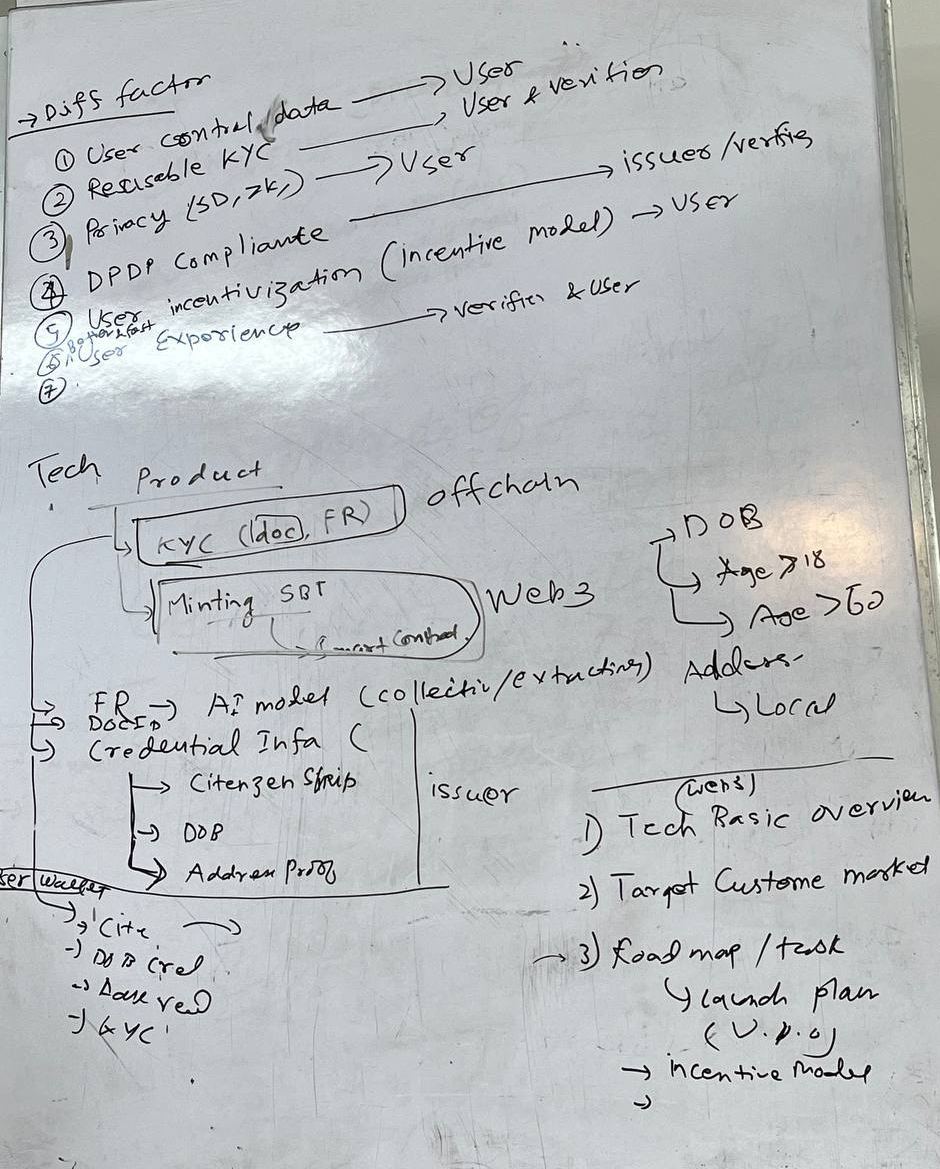 → Diff factor
① User control/data → User
② Resusable KYC → User & verifier
③ Privacy (SD, ZK,) → User
④ DPDP Compliante → issuer/verifier
⑤ User incentivization (incentive model) → User
⑥ Better & fast User Experience → verifier & User
⑦
Tech Product
KYC (doc, FR) offchain
Minting SBT Web3
Smart Contract
→ DOB
Age ≥ 18
Age > 60
Address
Local
FR → AI model (collectiv/extracting)
DocID
Credential Infa (
→ Citenzenship
→ DOB
→ Address Proof
issuer
User wallet
→ Cite →
→ DOB cred
→
→ KYC
(web3)
1) Tech Basic overview
2) Target Custome market
→ 3) Road map / task
launch plan
(V.1.0)
→ incentive model
→